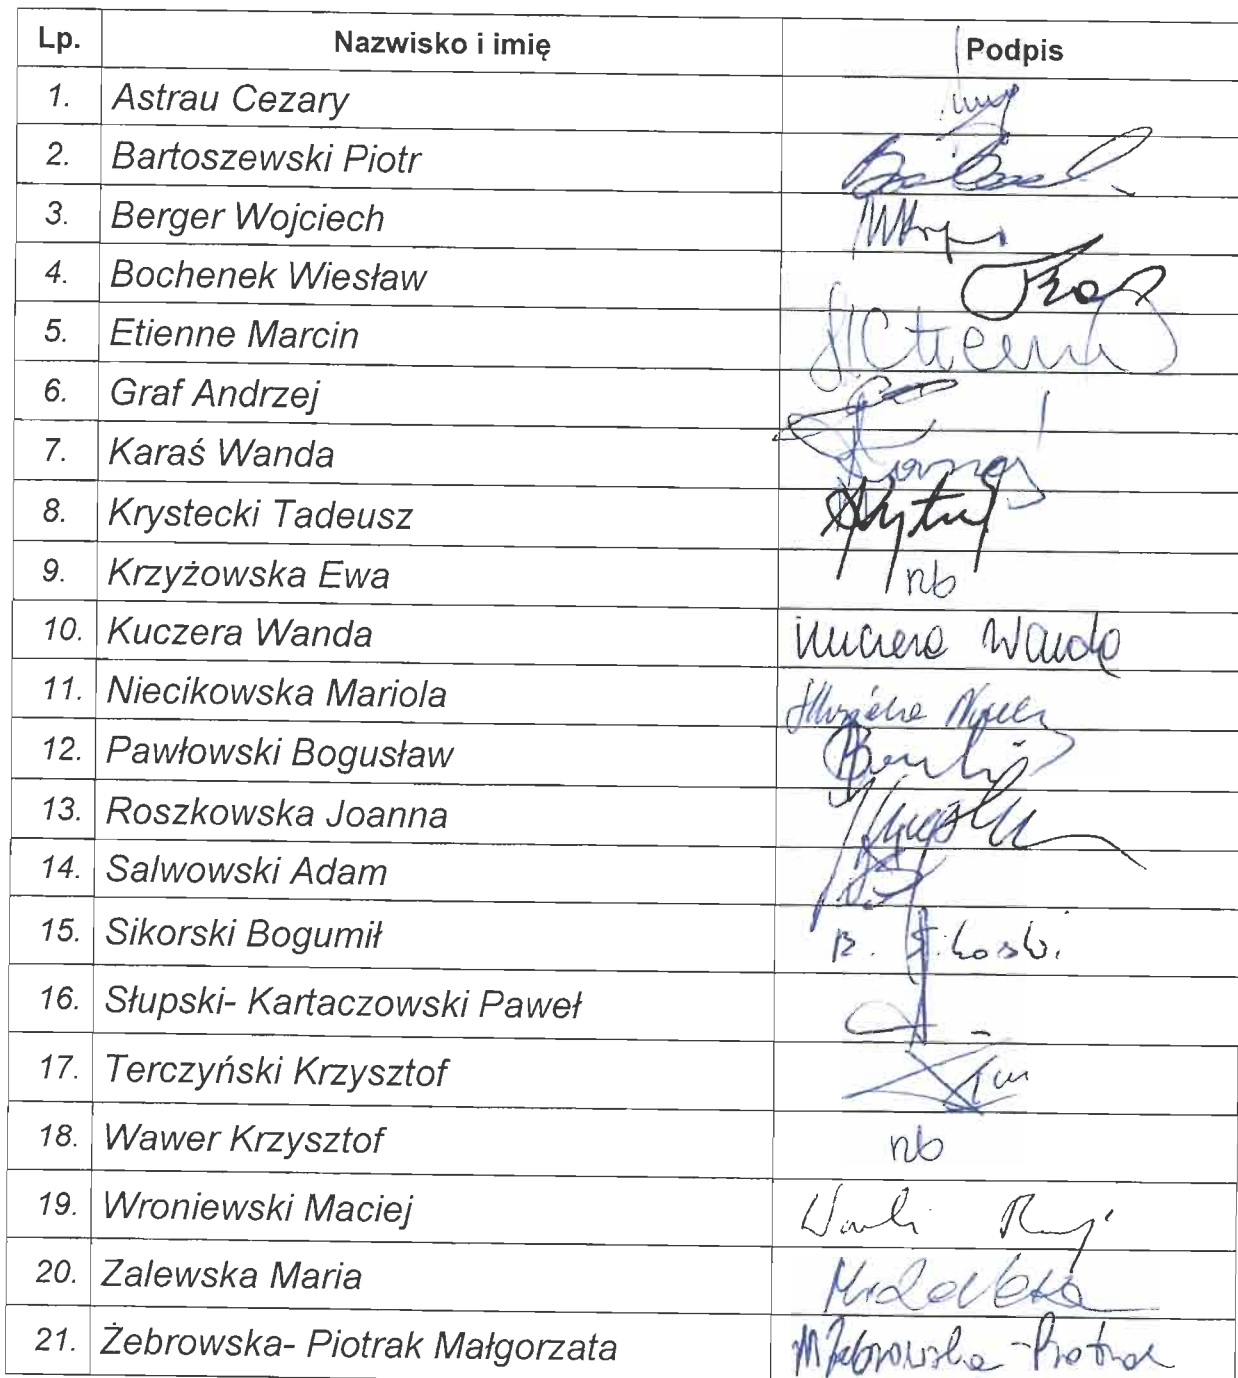 Lp. Nazwisko i imię Podpis
1. Astrau Cezary
2. Bartoszewski Piotr
3. Berger Wojciech
4. Bochenek Wiesław
5. Etienne Marcin
6. Graf Andrzej
7. Karaś Wanda
8. Krystecki Tadeusz
9. Krzyżowska Ewa nb
10. Kuczera Wanda Kuczera Wanda
11. Niecikowska Mariola
12. Pawłowski Bogusław
13. Roszkowska Joanna
14. Salwowski Adam
15. Sikorski Bogumił B. Sikorski
16. Słupski- Kartaczowski Paweł
17. Terczyński Krzysztof
18. Wawer Krzysztof nb
19. Wroniewski Maciej
20. Zalewska Maria
21. Żebrowska- Piotrak Małgorzata M Żebrowska-Piotrak